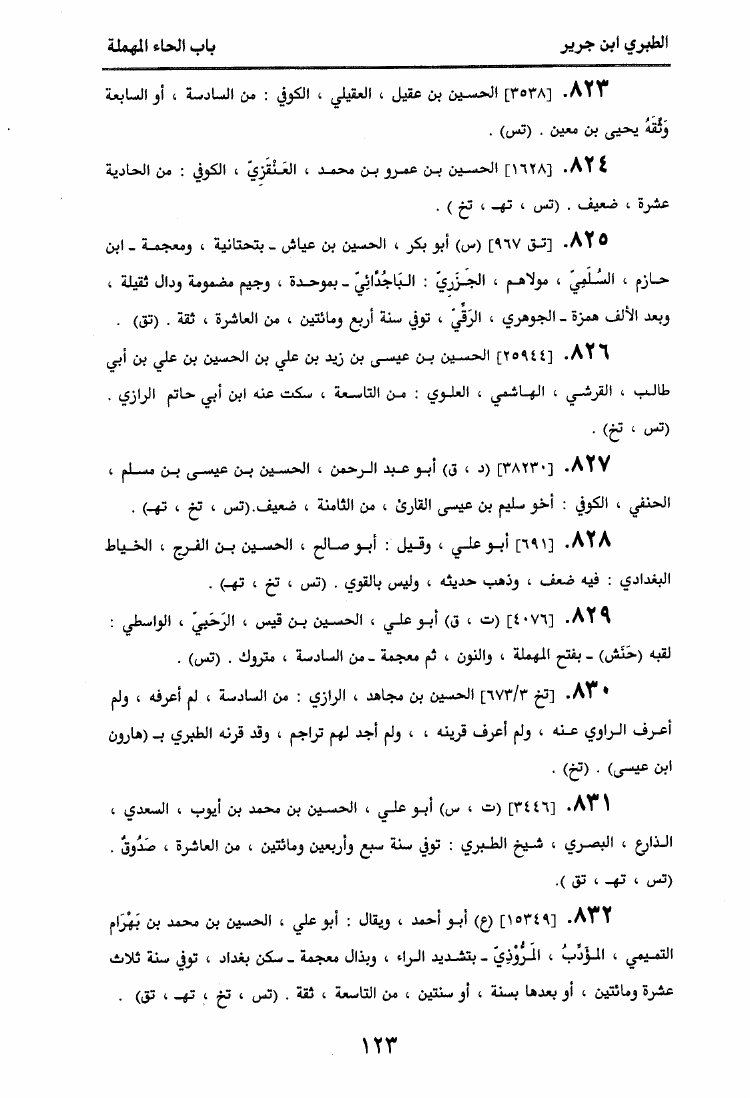 الطبري ابن جرير
باب الحاء المهملة
٨٢٣. [٣٥٣٨] الحسين بن عقيل ، العقيلي ، الكوفي : من السادسة ، أو السابعة
وَثَّقَهُ يحيى بن معين . (تس) .
٨٢٤. [١٦٢٨] الحسين بن عمرو بن محمد ، العَنْقَزِيّ ، الكوفي : من الحادية
عشرة ، ضعيف . (تس ، تهـ ، تخ ) .
٨٢٥. [تق ٩٦٧] (س) أبو بكر ، الحسين بن عياش ـ بتحتانية ، ومعجمة ـ ابن
حازم ، السُلَمِيّ ، مولاهم ، الجَزَرِيّ : البَاجُدَّائِيّ ـ بموحدة ، وجيم مضمومة ودال ثقيلة ،
وبعد الألف همزة ـ الجوهري ، الرَقِّيّ ، توفي سنة أربع ومائتين ، من العاشرة ، ثقة . (تق) .
٨٢٦. [٢٥٩٤٤] الحسين بن عيسى بن زيد بن علي بن الحسين بن علي بن أبي
طالب ، القرشي ، الهاشمي ، العلوي : من التاسعة ، سكت عنه ابن أبي حاتم الرازي .
(تس ، تخ) .
٨٢٧. [٣٨٢٣٠] (د ، ق) أبو عبد الرحمن ، الحسين بن عيسى بن مسلم ،
الحنفي ، الكوفي : أخو سليم بن عيسى القارئ ، من الثامنة ، ضعيف.(تس ، تخ ، تهـ) .
٨٢٨. [٦٩١] أبو علي ، وقيل : أبو صالح ، الحسين بن الفرج ، الخياط
البغدادي : فيه ضعف ، وذهب حديثه ، وليس بالقوي . (تس ، تخ ، تهـ) .
٨٢٩. [٤٠٧٦] (ت ، ق) أبو علي ، الحسين بن قيس ، الرَحَبِيّ ، الواسطي :
لقبه (حَنَش) ـ بفتح المهملة ، والنون ، ثم معجمة ـ من السادسة ، متروك . (تس) .
٨٣٠. [تخ ٦٧٣/٣] الحسين بن مجاهد ، الرازي : من السادسة ، لم أعرفه ، ولم
أعرف الراوي عنه ، ولم أعرف قرينه ، ، ولم أجد لهم تراجم ، وقد قرنه الطبري بـ (هارون
ابن عيسى) . (تخ) .
٨٣١. [٣٤٤٦] (ت ، س) أبو علي ، الحسين بن محمد بن أيوب ، السعدي ،
الذارع ، البصري ، شيخ الطبري : توفي سنة سبع وأربعين ومائتين ، من العاشرة ، صَدُوقٌ .
(تس ، تهـ ، تق ).
٨٣٢. [١٥٣٤٩] (ع) أبو أحمد ، ويقال : أبو علي ، الحسين بن محمد بن بَهْرَام
التميمي ، المؤَدِّبُ ، المَرُّوْذِيّ ـ بتشديد الراء ، وبذال معجمة ـ سكن بغداد ، توفي سنة ثلاث
عشرة ومائتين ، أو بعدها بسنة ، أو سنتين ، من التاسعة ، ثقة . (تس ، تخ ، تهـ ، تق) .
١٢٣